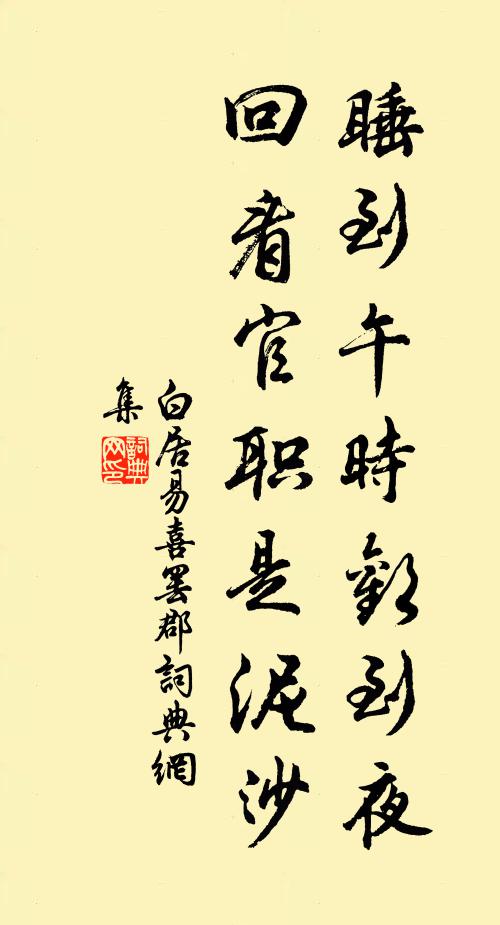 睡到午時歡到夜
回看官职是泥沙
白居易喜罢郡詞典網
集
詞典網印